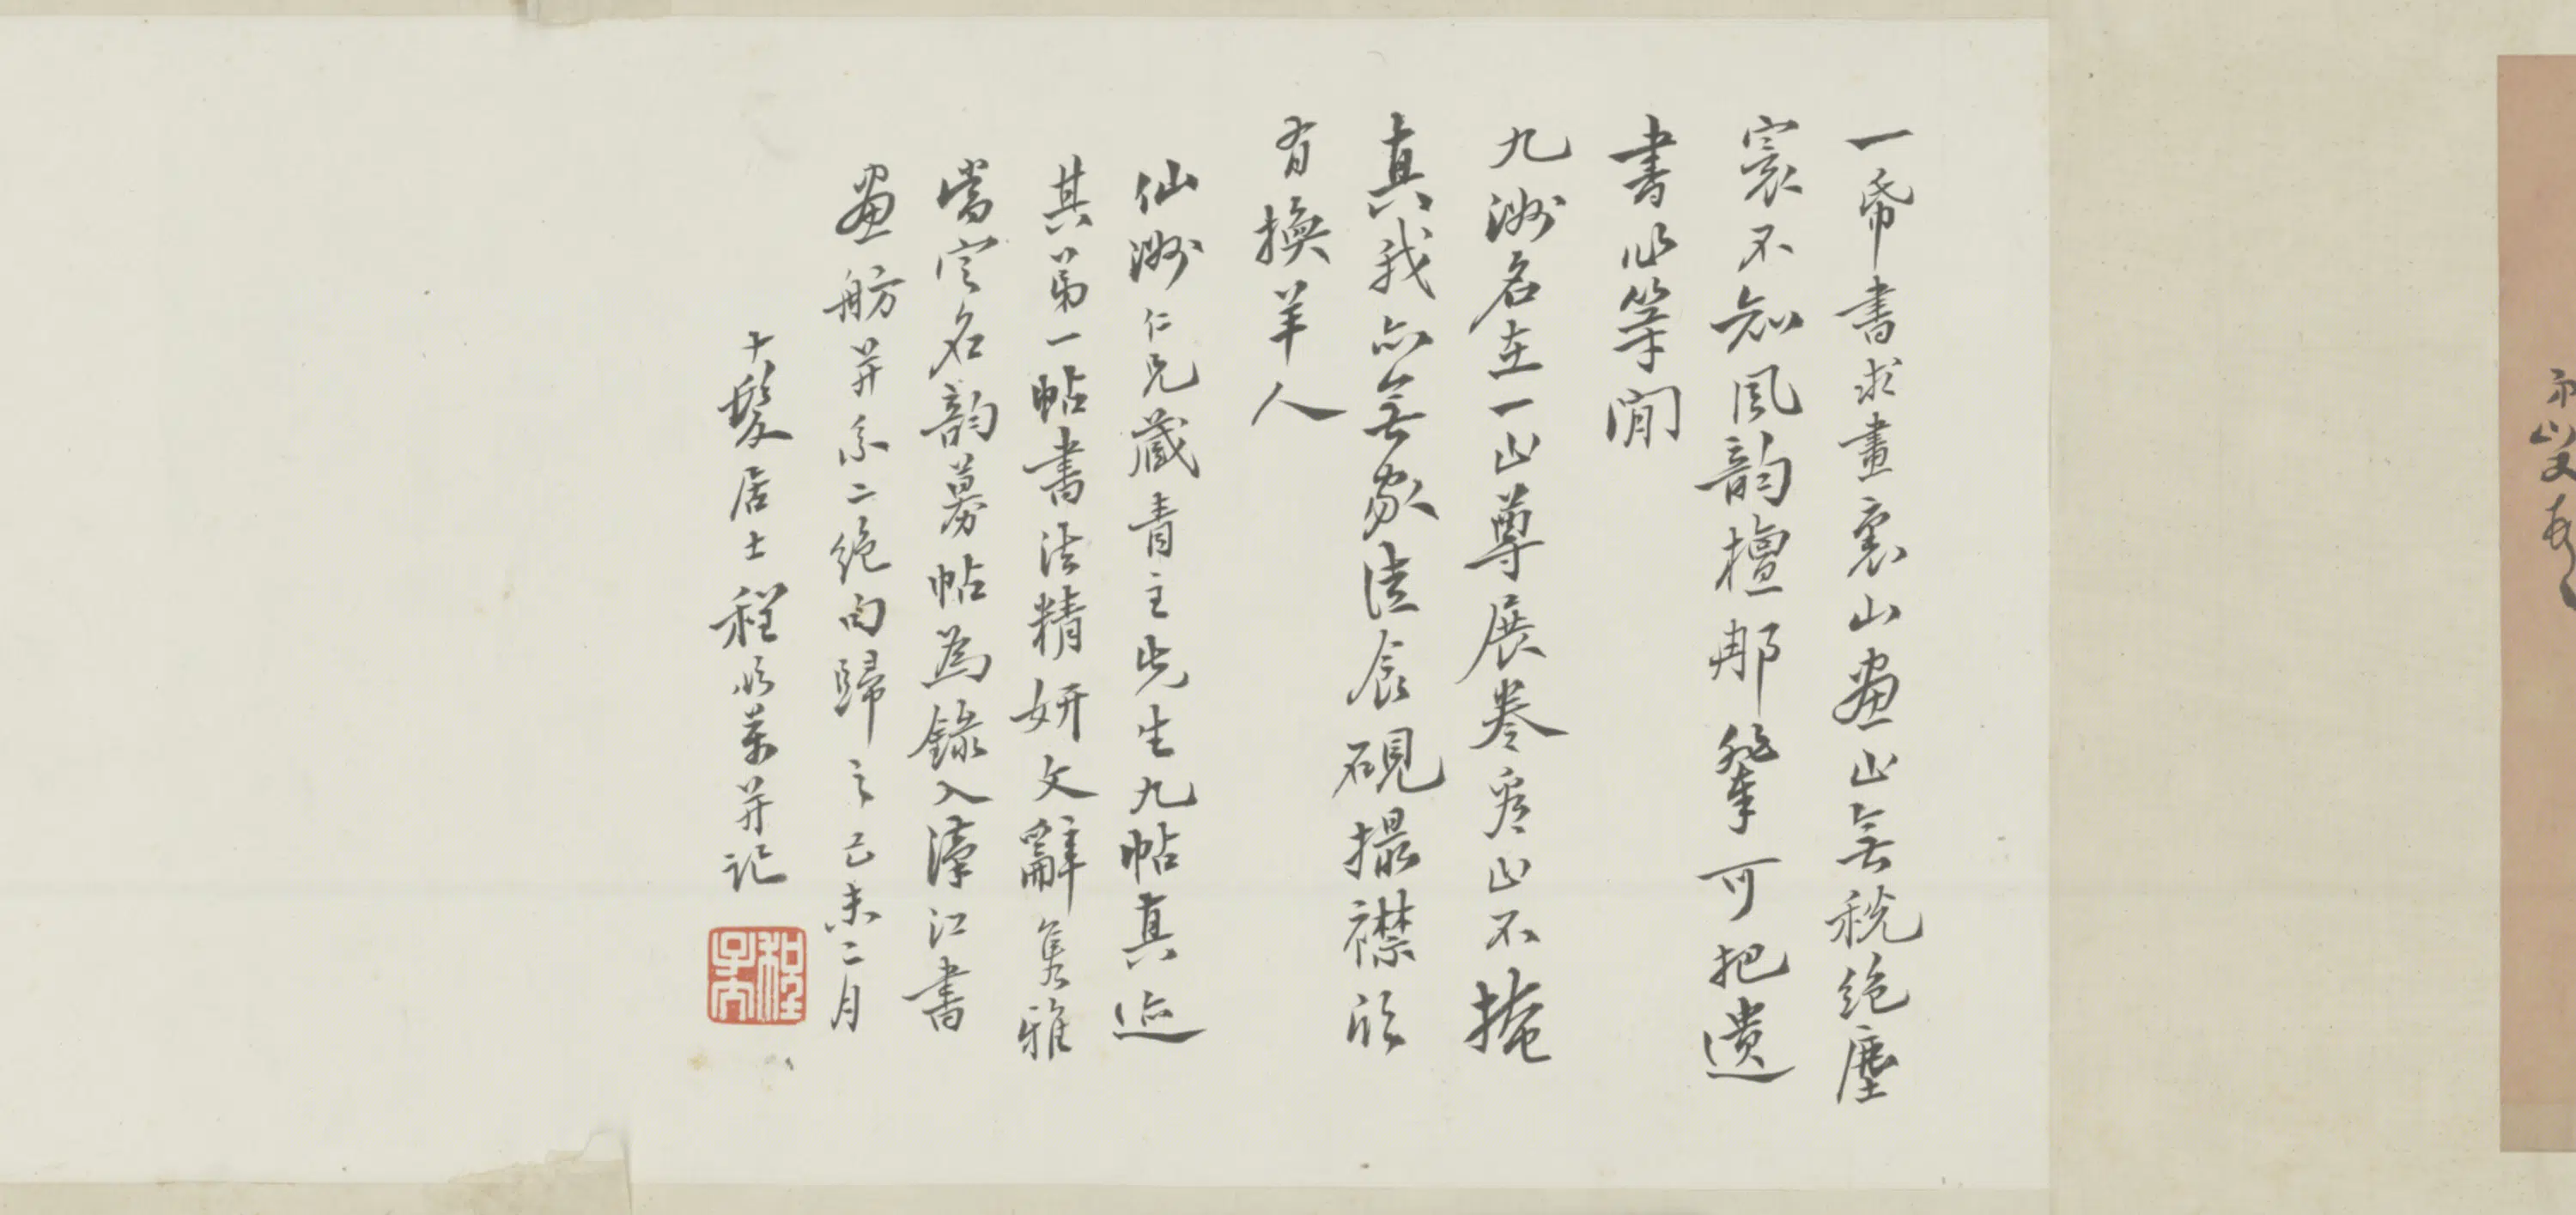 一帋書求畫裏山畫山無稅絕塵
寰不知風韻檀那輩可把遺
書必等閒
九洲名在一山尊展卷看山不掩
真我亦無家法食硯撮襟欣
有換羊人
仙洲仁兄藏青主先生九帖真迹
其第一帖書法精妍文辭雋雅
當定名韵募帖為錄入濅江書
畫舫并系二絕句歸之己未二月
十髮居士程頌萬并記